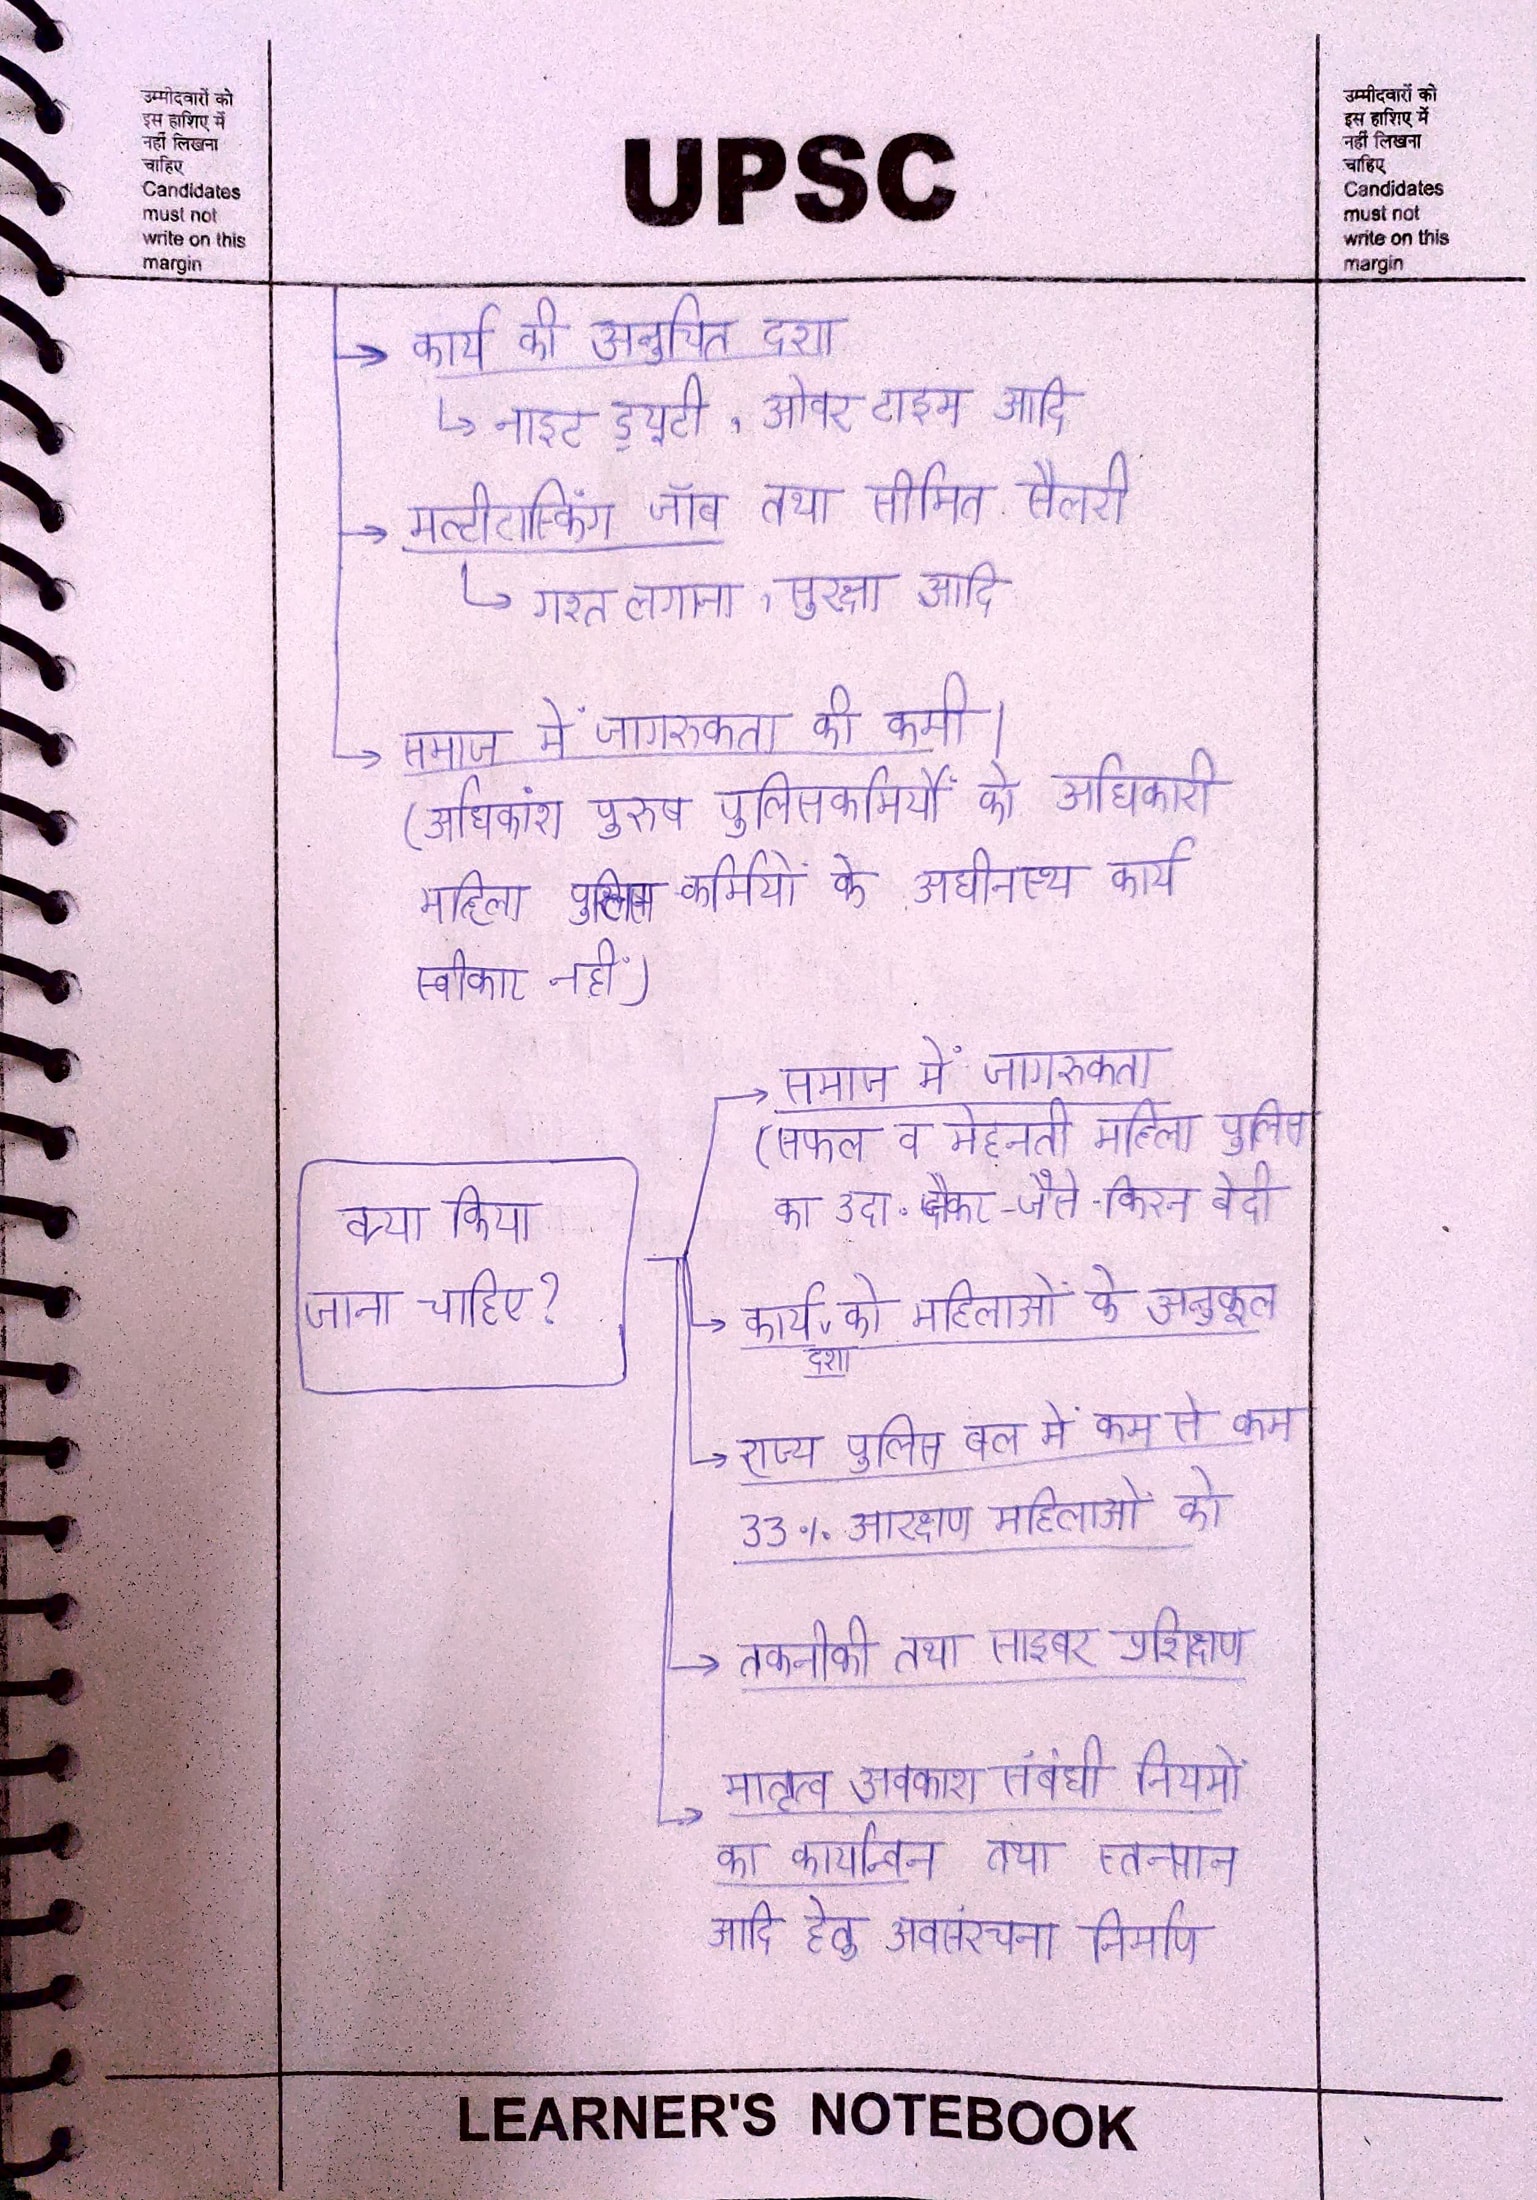 उम्मीदवारों को
इस हाशिए में
नहीं लिखना
चाहिए
Candidates
must not
write on this
margin
UPSC
उम्मीदवारों को
इस हाशिए में
नहीं लिखना
चाहिए
Candidates
must not
write on this
margin
→ कार्य की अनुचित दशा
↳ नाइट ड्यूटी, ओवर टाइम आदि
→ मल्टीटास्किंग जॉब तथा सीमित सैलरी
↳ गश्त लगाना, सुरक्षा आदि
→ समाज में जागरुकता की कमी।
(अधिकांश पुरुष पुलिसकर्मियों को अधिकारी
महिला पुलिस कर्मियों के अधीनस्थ कार्य
स्वीकार नहीं)
क्या किया
जाना चाहिए?
→ समाज में जागरुकता
(सफल व मेहनती महिला पुलिस
का उदा. देकर - जैसे - किरन बेदी
→ कार्य दशा को महिलाओं के अनुकूल
→ राज्य पुलिस बल में कम से कम
33% आरक्षण महिलाओं को
→ तकनीकी तथा साइबर प्रशिक्षण
→ मातृत्व अवकाश संबंधी नियमों
का कार्यान्वन तथा स्तनपान
आदि हेतु अवसंरचना निर्माण
LEARNER'S NOTEBOOK